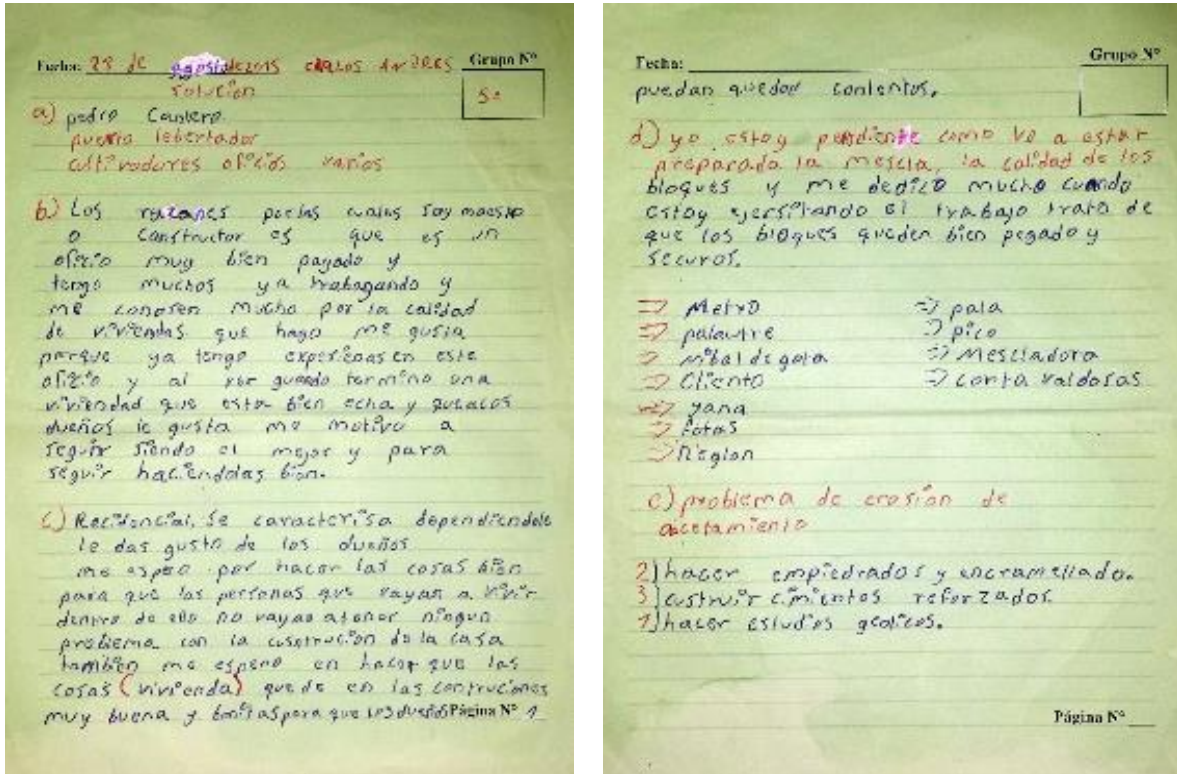 Fecha: 28 de agosto de 2015 carlos ANDRES Grupo Nº
solucion 5º
a) pedro Cantero
puerto lebertador
cultivadores oficios varios
b) Los razones porlas cualas soy maestro
o constructor es que es un
oficio muy bien pagado y
tengo muchos ya trabagando y
me conosen mucho por la calidad
de viviendas que hago me gusta
porque ya tengo en este
oficio y al ver guando termino una
viviendad que esta bien echa y
dueños le gusta me motiva a
seguir siendo el mejor y para
seguir haciendolas bien.
c) Recidencial, se caracterisa dependiendole
le das gusto de los dueños
me espero por hacer las cosas bien
para que las personas que vayan a vivir
dentro de ella no vayan atener ningun
problema con la custrucion de la casa
tambien me espero en hacer que las
cosas (vivienda) quede en las contruciones
muy buena y bonitas para que los dueños Página Nº 1
Fecha: Grupo Nº
puedan quedad contentos.
d) yo estoy pendiente como va a estar
preparada la mescla, la calidad de los
bloques y me dedico mucho cuando
estoy ejersitando el trabajo trato de
que los bloques queden bien pegado y
securos.
=> Metro => pala
=> palautre => pico
=> nibal de gota => Mescladora
=> Cliento => corta valdosas
=> yana
=> Fotas
=> Reglon
e) problema de erosian de
2) hacer empiedrados y
3) custruir cimientos reforzados.
1) hacer estudios
Página Nº